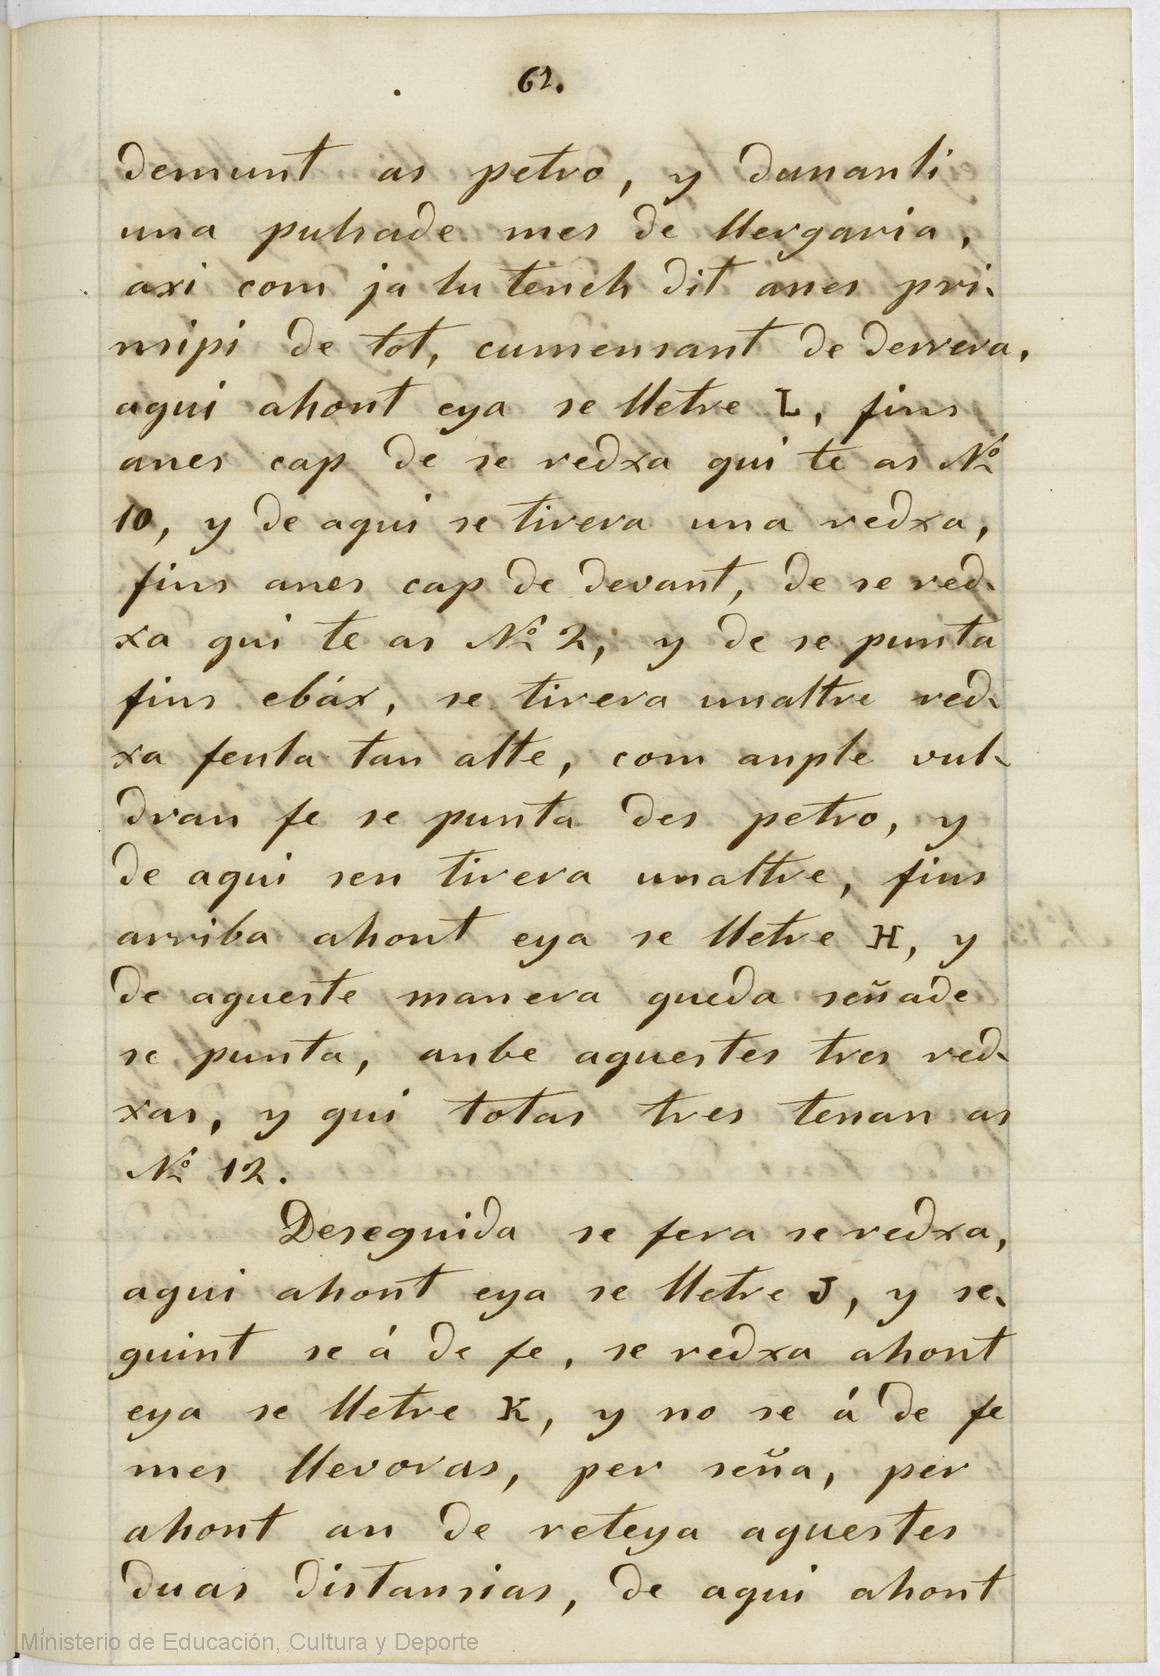 62.
demunt as petro, y dunanli
una pulsade mes de llergaria,
axi com ja lu tench dit anes pri-
nsipi de tot, cumensant de derrera,
aqui ahont eya se lletre L, fins
anes cap de se redxa qui te as Nº
10, y de aqui se tirera una redxa,
fins anes cap de devant, de se red-
xa qui te as Nº 2, y de se punta
fins ebáx, se tirera unaltre red-
xa fenla tan alte, com anple vul-
dran fe se punta des petro, y
de aqui sen tirera unaltre, fins
arriba ahont eya se lletre H, y
de agueste manera queda señade
se punta, anbe aguestes tres red-
xas, y qui totas tres tenan as
Nº 12.
Deseguida se fera se redxa,
aqui ahont eya se lletre J, y se-
guint se á de fe, se redxa ahont
eya se lletre K, y no se á de fe
mes llevoras, per seña, per
ahont an de reteya aguestes
duas distansias, de aqui ahont
Ministerio de Educación, Cultura y Deporte